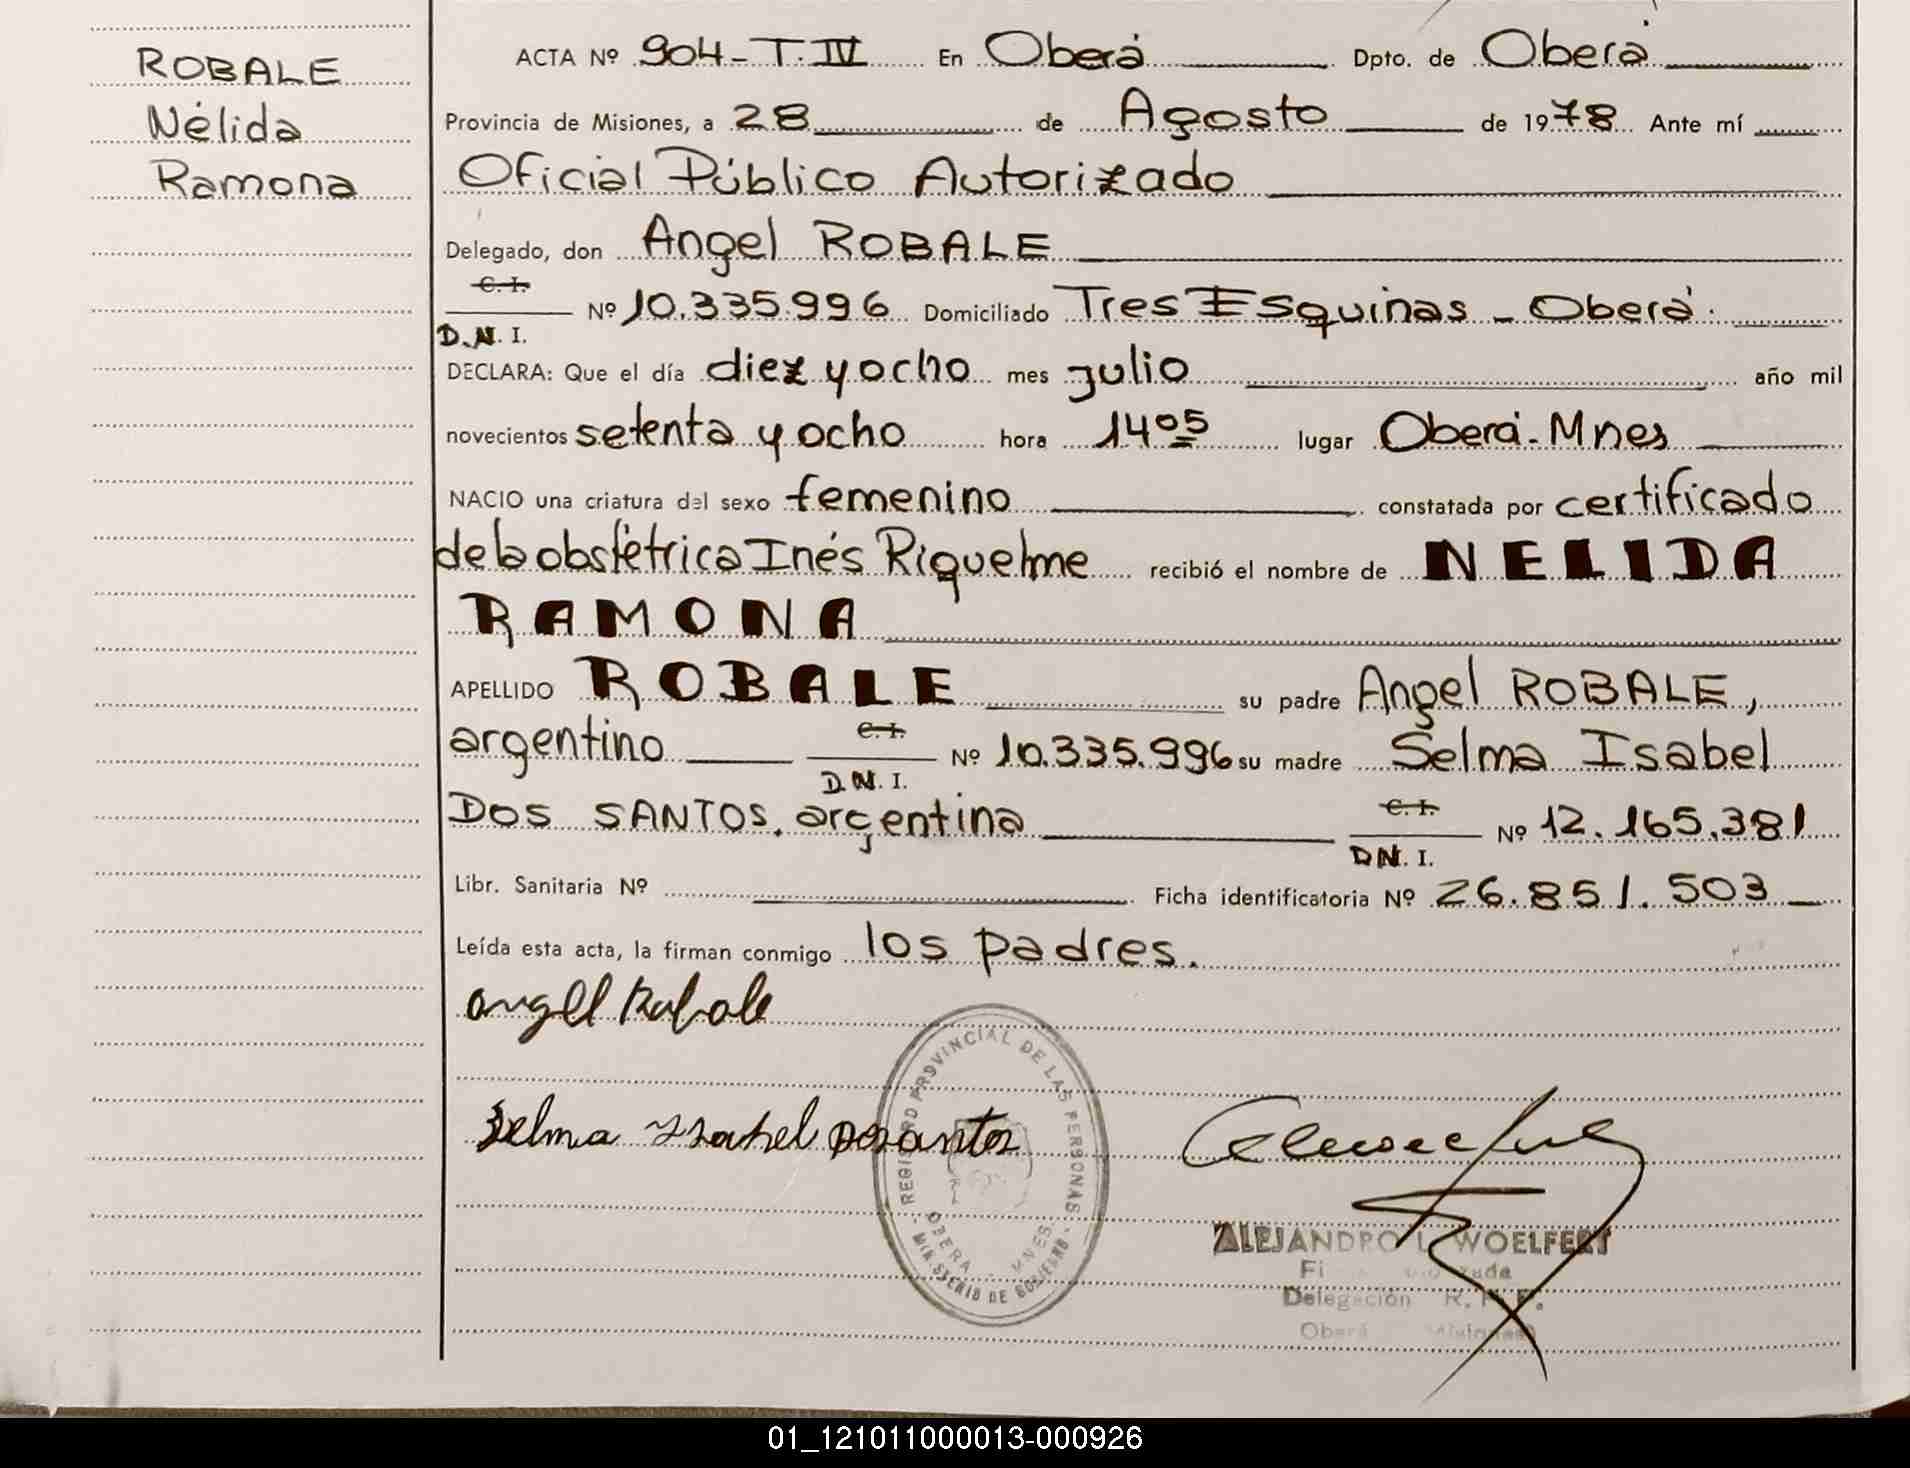 ROBALE
Nélida
Ramona
ACTA Nº 904-T.IV En Oberá Dpto. de Oberá
Provincia de Misiones, a 28 de Agosto de 1978 Ante mí
Oficial Público Autorizado
Delegado, don Angel ROBALE
C. I.
Nº 10.335.996 Domiciliado Tres Esquinas - Oberá.
D.N. I.
DECLARA: Que el día diez y ocho mes julio año mil
novecientos setenta y ocho hora 14 05 lugar Oberá-Mnes
NACIO una criatura del sexo femenino constatada por certificado
de la obstétrica Inés Riquelme recibió el nombre de NELIDA
RAMONA
APELLIDO ROBALE su padre Angel ROBALE,
argentino C. I. Nº 10.335.996 su madre Selma Isabel
D.N. I.
DOS SANTOS, argentina C. I. Nº 12.165.381
D N. I.
Libr. Sanitaria Nº Ficha identificatoria Nº 26.851.503
Leída esta acta, la firman conmigo los padres.
angel Robale
Selma Isabel Dosantos
REGISTRO PROVINCIAL DE LAS PERSONAS
OBERA - MNES.
MINISTERIO DE GOBIERNO
ALEJANDRO L. WOELFERT
Delegación R. P.
Oberá Misiones
01_121011000013-000926